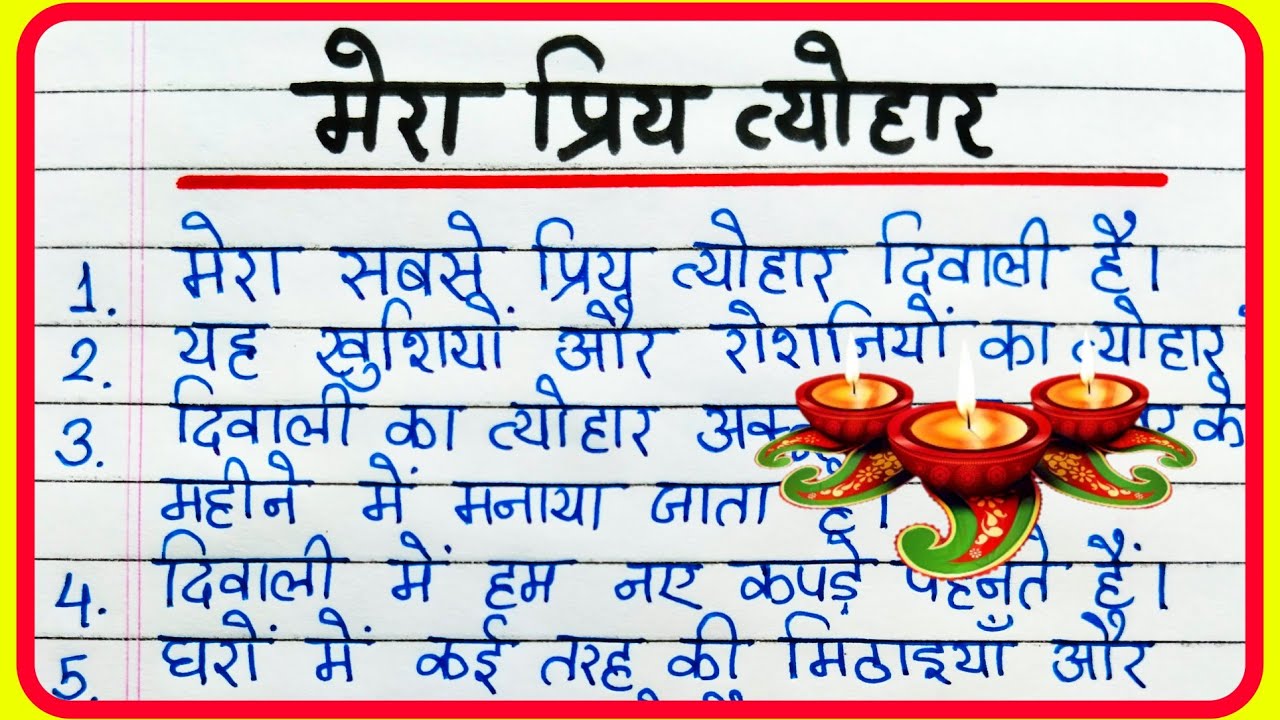 मेरा प्रिय त्योहार
1. मेरा सबसे प्रिय त्योहार दिवाली है।
2. यह खुशियों और रोशनियों का त्योहार
3. दिवाली का त्योहार के
महीने में मनाया जाता है।
4. दिवाली में हम नए कपड़े पहनते हैं।
5. घरों में कई तरह की मिठाइयाँ और